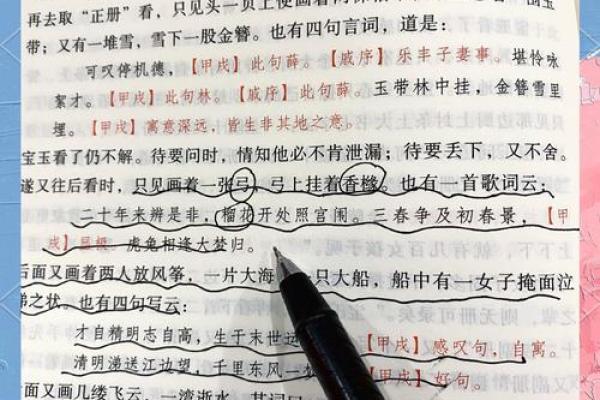 再去取“正册”看，只见头一页上便画着两株枯
带；又有一堆雪，雪下一股金簪。也有四句言词，道是：
可叹停机德，【甲戌】此句薛。【戚序】乐羊子妻事。堪怜咏
絮才。【甲戌】此句林。【戚序】此句薛。玉带林中挂，金簪雪里
埋。【甲戌】寓意深远，皆生非其地之意。
宝玉看了仍不解。待要问时，情知他必不肯泄漏；待要丢下，又不舍。
遂又往后看时，只见画着一张弓，弓上挂着香橼。也有一首歌词云：
二十年来辨是非，榴花开处照宫闱。三春争及初春景，【甲
戌】显极。虎兔相逢大梦归。
后面又画着两人放风筝，一片大海，一只大船，船中有一女子掩面泣
涕之状。也有四句写云：
才自精明志自高，生于末世运【甲戌】感叹句，自寓。
清明涕送江边望，千里东风一【甲戌】好句。
后面又画几缕飞云，一湾逝水，其词曰